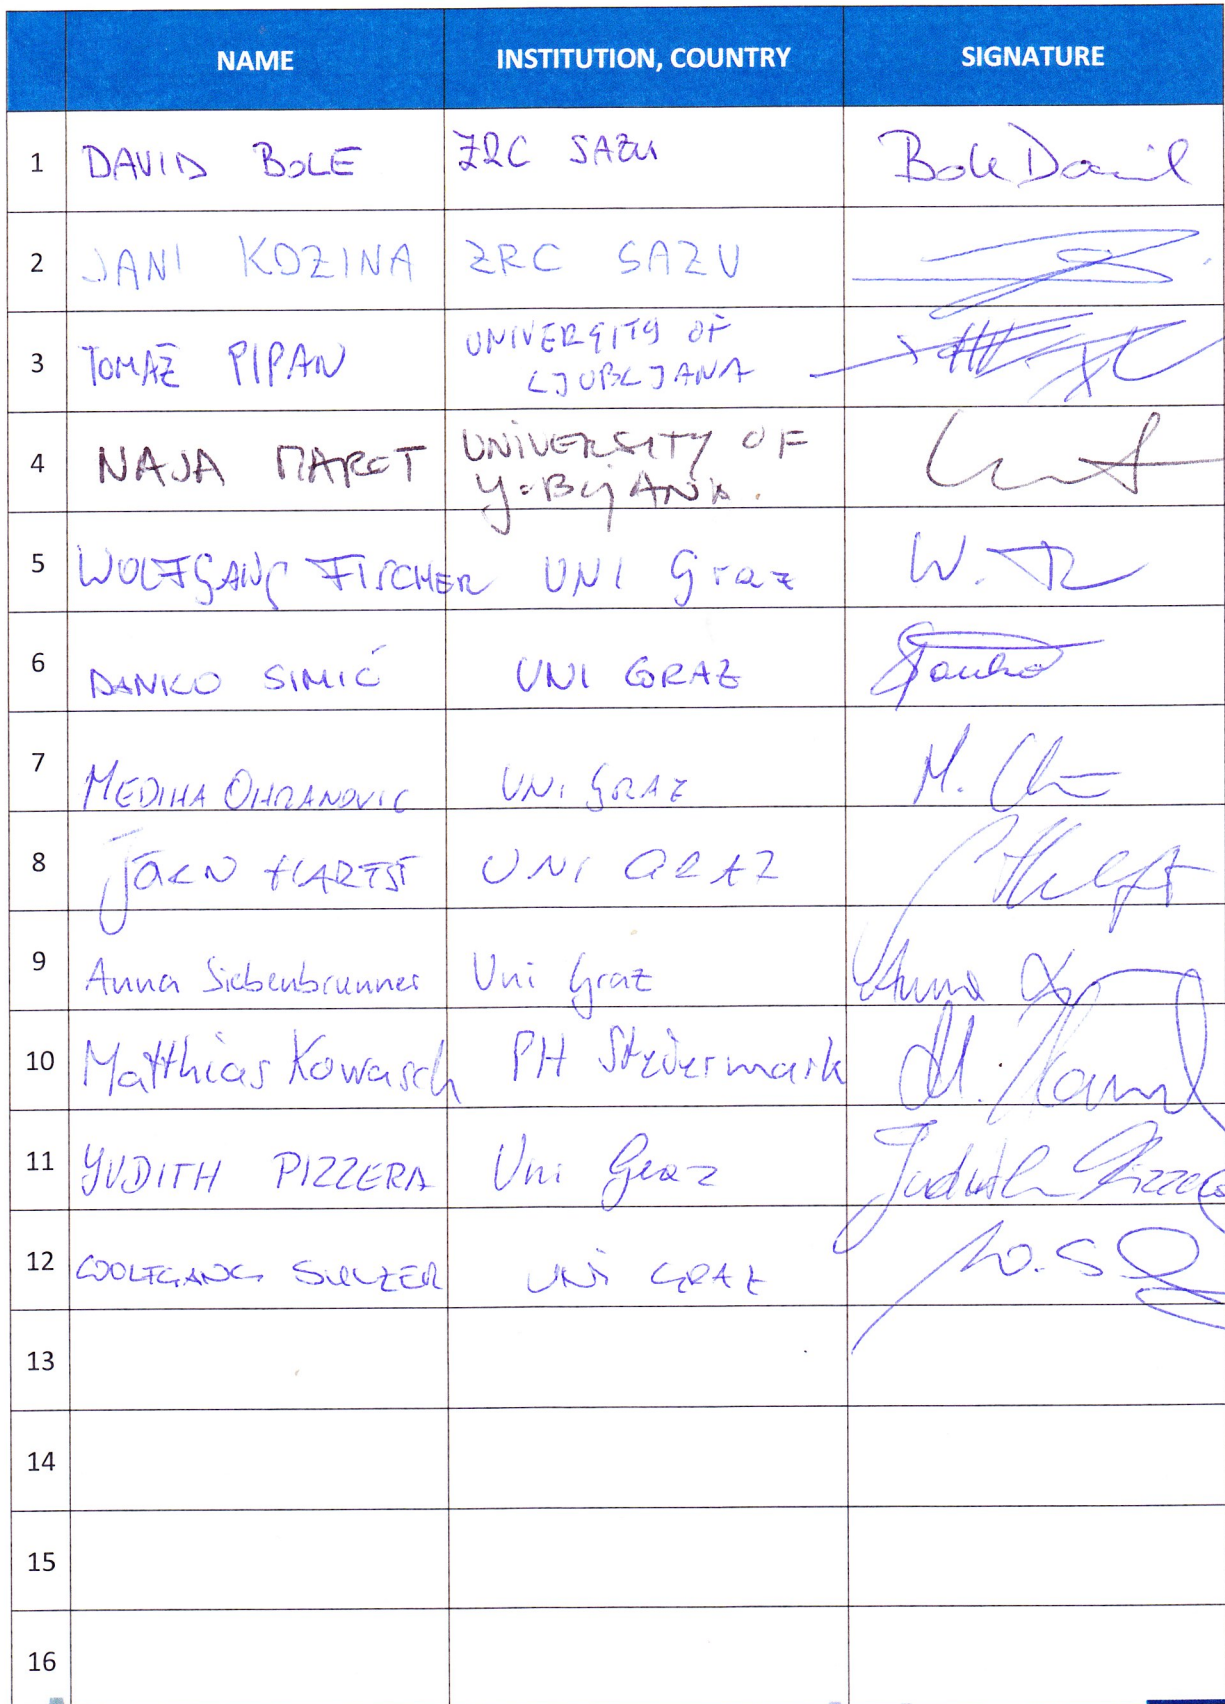 NAME INSTITUTION, COUNTRY SIGNATURE
1 DAVID BOLE ZRC SAZU Bole David
2 JANI KOZINA ZRC SAZU
3 TOMAŽ PIPAN UNIVERSITY OF
LJUBLJANA
4 NAJA MAROT UNIVERSITY OF
LJUBLJANA.
5 WOLFGANG FISCHER UNI Graz W.
6 DANKO SIMIĆ UNI GRAZ Danko
7 MEDIHA OHRANOVIC UNI GRAZ M.
8 UNI GRAZ
9 Anna Siebenbrunner Uni Graz Anna
10 Matthias Kowasch PH Steiermark M.
11 JUDITH PIZZERA Uni Graz Judith Pizzera
12 WOLFGANG SULZER UNI GRAZ W. S
13
14
15
16